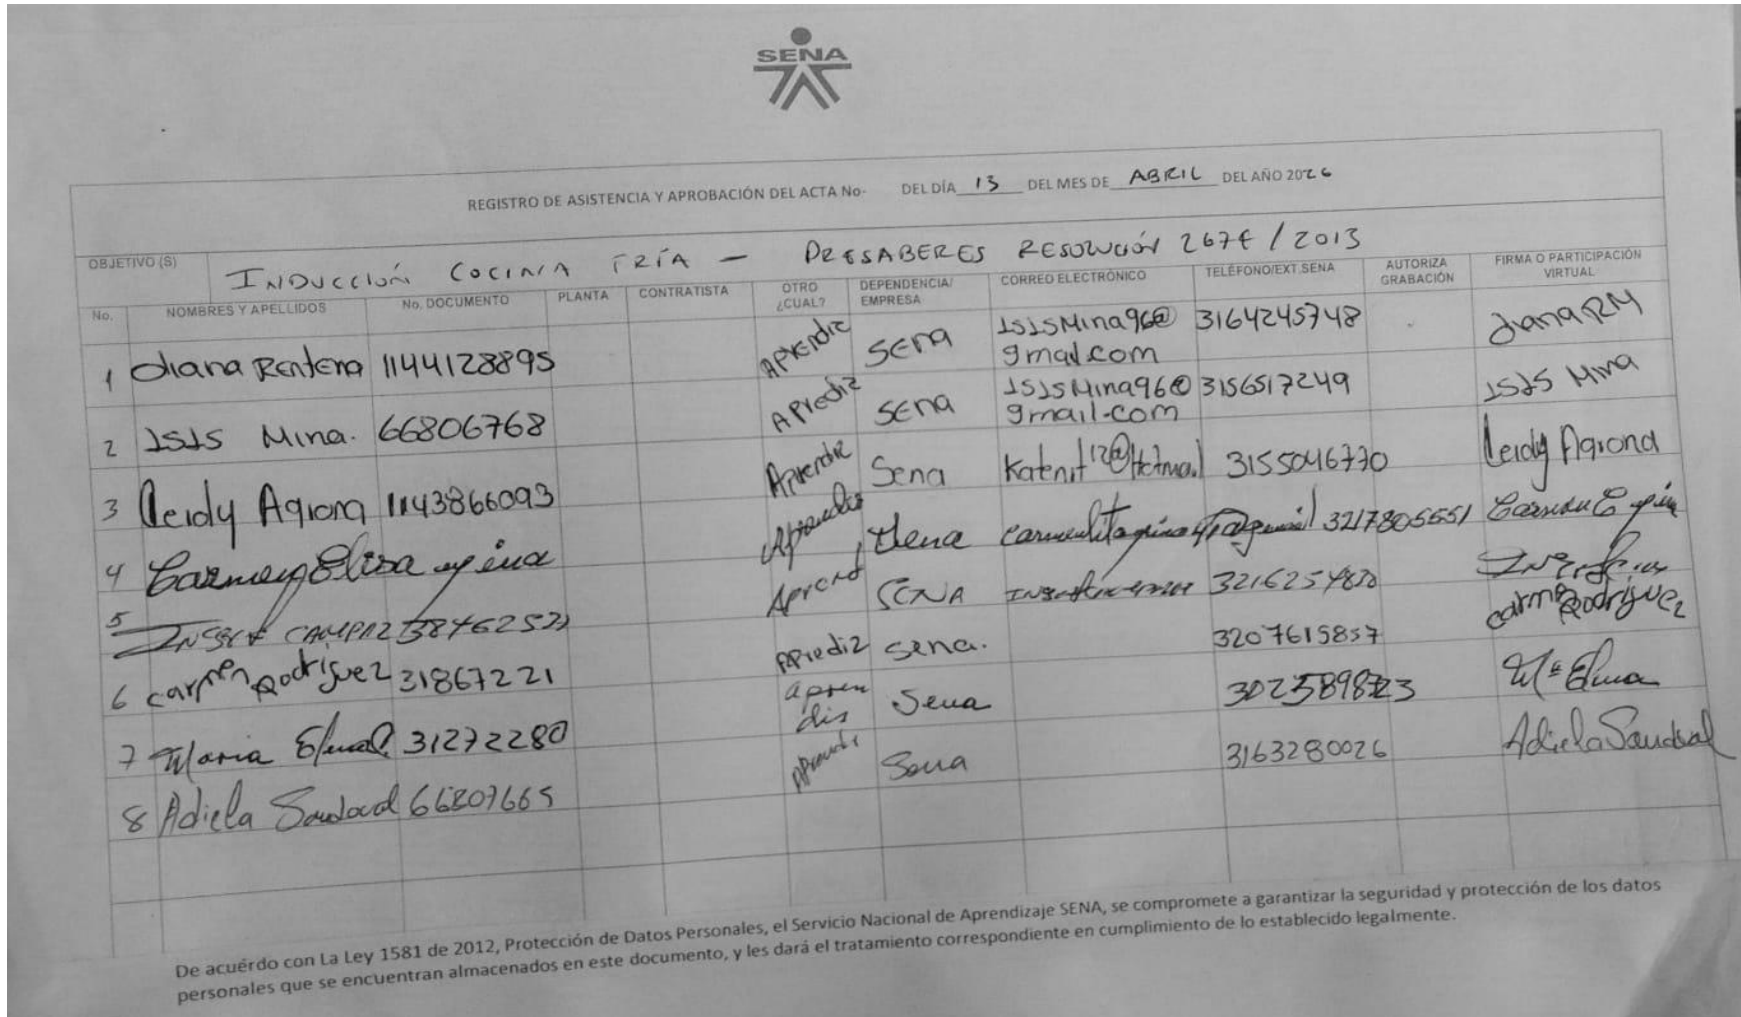 SENA
REGISTRO DE ASISTENCIA Y APROBACIÓN DEL ACTA No- DEL DÍA 13 DEL MES DE ABRIL DEL AÑO 2026
OBJETIVO (S) INDUCCIÓN COCINA FRÍA – PRESABERES RESOLUCIÓN 2674 / 2013
No. NOMBRES Y APELLIDOS No. DOCUMENTO PLANTA CONTRATISTA OTRO ¿CUAL? DEPENDENCIA/ EMPRESA CORREO ELECTRÓNICO TELÉFONO/EXT.SENA AUTORIZA GRABACIÓN FIRMA O PARTICIPACIÓN VIRTUAL
1 diana Renteria 1144128895 Aprendiz Sena ISISMina96@gmail.com 3164245748 diana RM
2 ISIS Mina. 66806768 Aprediz Sena ISISMina96@gmail.com 3156517249 ISIS Mina
3 Leidy 1143866093 Aprendiz Sena 3155046770 Leidy
4 Carmen Elisa 3217805551
5 SENA
6 Carmen Rodriguez 31867221 Aprediz Sena. 3207615857 Carmen Rodriguez
7 Maria 31272280 apren dis Sena Mª
8 Adiela Sandoval 66807665 Sena 3163280026 Adiela Sandoval
De acuerdo con La Ley 1581 de 2012, Protección de Datos Personales, el Servicio Nacional de Aprendizaje SENA, se compromete a garantizar la seguridad y protección de los datos
personales que se encuentran almacenados en este documento, y les dará el tratamiento correspondiente en cumplimiento de lo establecido legalmente.